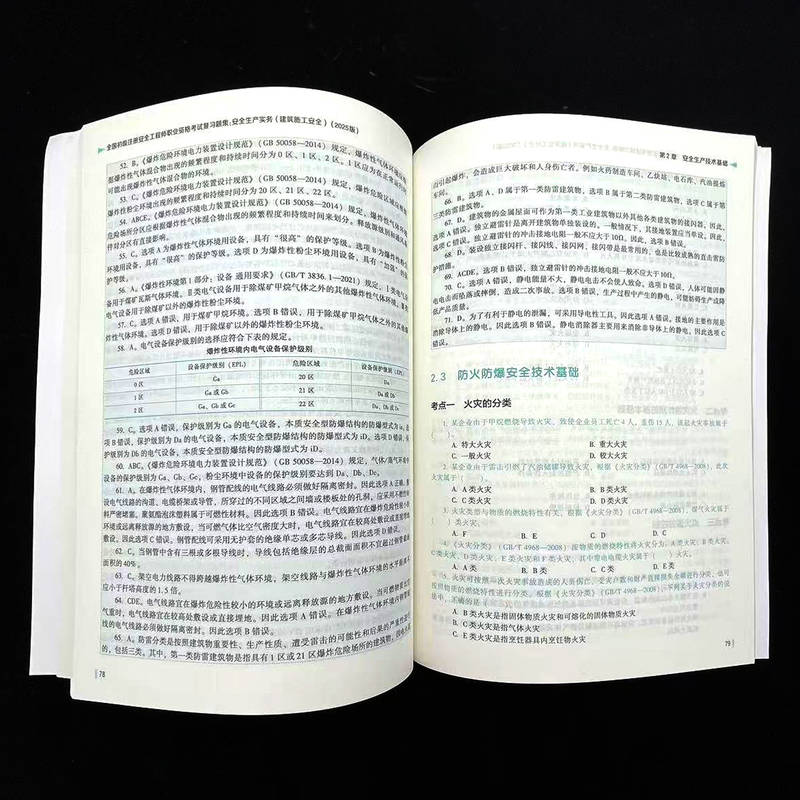 全国初级注册安全工程师职业资格考试复习题集:安全生产实务(建筑施工安全)(2025版)
52. B,《爆炸危险环境电力装置设计规范》(GB 50058—2014)规定,爆炸性气体环境应
根据爆炸性气体混合物出现的频繁程度和持续时间分为0区、1区、2区,1区应为在正常运行时
可能出现爆炸性气体混合物的环境。
53. C,《爆炸危险环境电力装置设计规范》(GB 50058—2014)规定,
爆炸性粉尘环境出现的频繁程度和持续时间分为20区、21区、22区。
54. ABCE,《爆炸危险环境电力装置设计规范》(GB 50058—2014)规定,
危险场所区应根据爆炸性气体混合物出现的频繁程度和持续时间来划分。释放源级别和通风条
件对分区有直接影响。
55. C。选项A为爆炸性气体环境用设备,具有“很高”的保护等级。选项B为爆炸性粉尘
环境用设备,具有“很高”的保护等级。选项D为爆炸性粉尘环境用设备,具有“加强”的保
护等级。
56. A。《爆炸性环境 第1部分:设备 通用要求》(GB/T 3836.1—2021)规定,Ⅰ类电气
设备用于煤矿瓦斯气体环境。Ⅱ类电气设备用于除煤矿甲烷气体之外的其他爆炸性气体环境。Ⅲ类
电气设备用于除煤矿以外的爆炸性粉尘环境。
57. C。选项A错误,用于煤矿甲烷环境。选项B错误,用于除煤矿甲烷气体之外的其他爆
炸性气体环境。选项D错误,用于除煤矿以外的爆炸性粉尘环境。
58. A。电气设备保护级别的选择应符合下表的规定。
爆炸性环境内电气设备保护级别
危险区域 设备保护级别(EPL) 危险区域 设备保护级别(EPL)
0区 Ga 20区 Da
1区 Ga或Gb 21区 Da或Db
2区 Ga、Gb或Gc 22区 Da、Db或Dc
59. C。选项A错误,保护级别为Ga的电气设备,本质安全型防爆结构的防爆型式为ia。选
项B错误,保护级别为Da的电气设备,本质安全型防爆结构的防爆型式为iD。选项D错误,保
护级别为Db的电气设备,本质安全型防爆结构的防爆型式为iD。
60. ABC,《爆炸危险环境电力装置设计规范》(GB 50058—2014)规定,气体/蒸气环境中
设备的保护级别为Ga、Gb、Gc,粉尘环境中设备的保护级别要达到Da、Db、Dc。
61. A。在爆炸性气体环境内,钢管配线的电气线路必须做好隔离密封。因此选项A正确。敷
设电气线路的沟道、电缆桥架或导管,所穿过的不同区域之间墙或楼板处的孔洞,应采用不燃性材
料严密堵塞。聚氨酯泡沫塑料属于可燃性材料。因此选项B错误。电气线路宜在爆炸危险性较小的
环境或远离释放源的地方敷设,当可燃气体比空气密度大时,电气线路宜在较高处敷设或直接埋地
敷设。因此选项C错误。钢管配线可采用无护套的绝缘单芯或多芯导线。因此选项D错误。
62. C。当钢管中含有三根或多根导线时,导线包括绝缘层的总截面面积不宜超过钢管截
面积的40%。
63. C。架空电力线路不得跨越爆炸性气体环境,架空线路与爆炸性气体环境的水平距离不
应小于杆塔高度的1.5倍。
64. CDE。电气线路宜在爆炸危险性较小的环境或远离释放源的地方敷设。当可燃物质比空
气重时,电气线路宜在较高处敷设或直接埋地。因此选项A错误。在爆炸性气体环境内钢管配
线的电气线路必须做好隔离密封。因此选项B错误。
65. A。防雷分类是按照建筑物重要性、生产性质、遭受雷击的可能性和后果的严重性进行
的,包括三类。其中,第一类防雷建筑物是指具有1区或21区爆炸危险场所的建筑物,
78
第2章 安全生产技术基础
而引起爆炸,会造成巨大破坏和人身伤亡者,例如火药制造车间、乙炔站、电石库、汽油提炼
车间。
66. B。选项A、D属于第一类防雷建筑物,选项B属于第二类防雷建筑物,选项C属于第
三类防雷建筑物。
67. D。建筑物的金属屋面可作为第一类工业建筑物以外其他各类建筑物的接闪器。因此,
选项A错误。独立避雷针是离开建筑物单独装设的。一般情况下,其接地装置应当单设。因此,
选项C错误。独立避雷针的冲击接地电阻一般不应大于10Ω。因此,选项B错误。
68. D。装设独立接闪杆、接闪线、接闪网、接闪带是最常用的、也是比较成熟的直击雷防
护措施。
69. ACDE。选项B错误,独立避雷针的冲击接地电阻一般不应大于10Ω。
70. C。选项A错误,静电能量不大,静电电击不会使人致命。选项D错误,人体可能因静
电电击而坠落或摔倒,造成二次事故。选项B错误,生产过程中产生的静电,可能妨碍生产或降
低产品质量。
71. D。为了有利于静电的泄漏,可采用导电性工具。因此选项A错误。接地的主要作用是
消除导体上的静电。因此选项B错误。静电消除器主要用来消除非导体上的静电。因此选项C
错误。
2.3 防火防爆安全技术基础
考点一 火灾的分类
1. 某企业由于甲烷燃烧导致火灾,致使企业员工死亡4人,重伤15人,该起火灾事故属于
( )。
A. 特大火灾 B. 重大火灾
C. 一般火灾 D. 较大火灾
2. 某企业由于雷击引燃了汽油储罐导致火灾,根据《火灾分类》(GB/T 4968—2008),此次
火灾属于( )。
A. A类火灾 B. B类火灾
C. C类火灾 D. D类火灾
3. 火灾类型与物质的燃烧特性有关,根据《火灾分类》(GB/T 4968—2008),煤气火灾属于
( )类火灾。
A. F B. B C. C D. E
4. 《火灾分类》(GB/T 4968—2008)按物质的燃烧特性将火灾分为:A类火灾、B类火灾、
C类火灾、D类火灾、E类火灾和F类火灾。其中带电电缆火灾属于( )火灾。
A. A类 B. B类 C. C类 D. E类
5. 火灾可按照一次火灾事故造成的人员伤亡、受灾户数和财产直接损失金额进行分类,也可
按照物质的燃烧特性进行分类。根据《火灾分类》(GB/T 4968—2008),下列关于火灾分类的说
法中,正确的是( )。
A. B类火灾是指固体物质火灾和可熔化的固体物质火灾
B. C类火灾是指气体火灾
C. E类火灾是指烹饪器具内烹饪物火灾
79